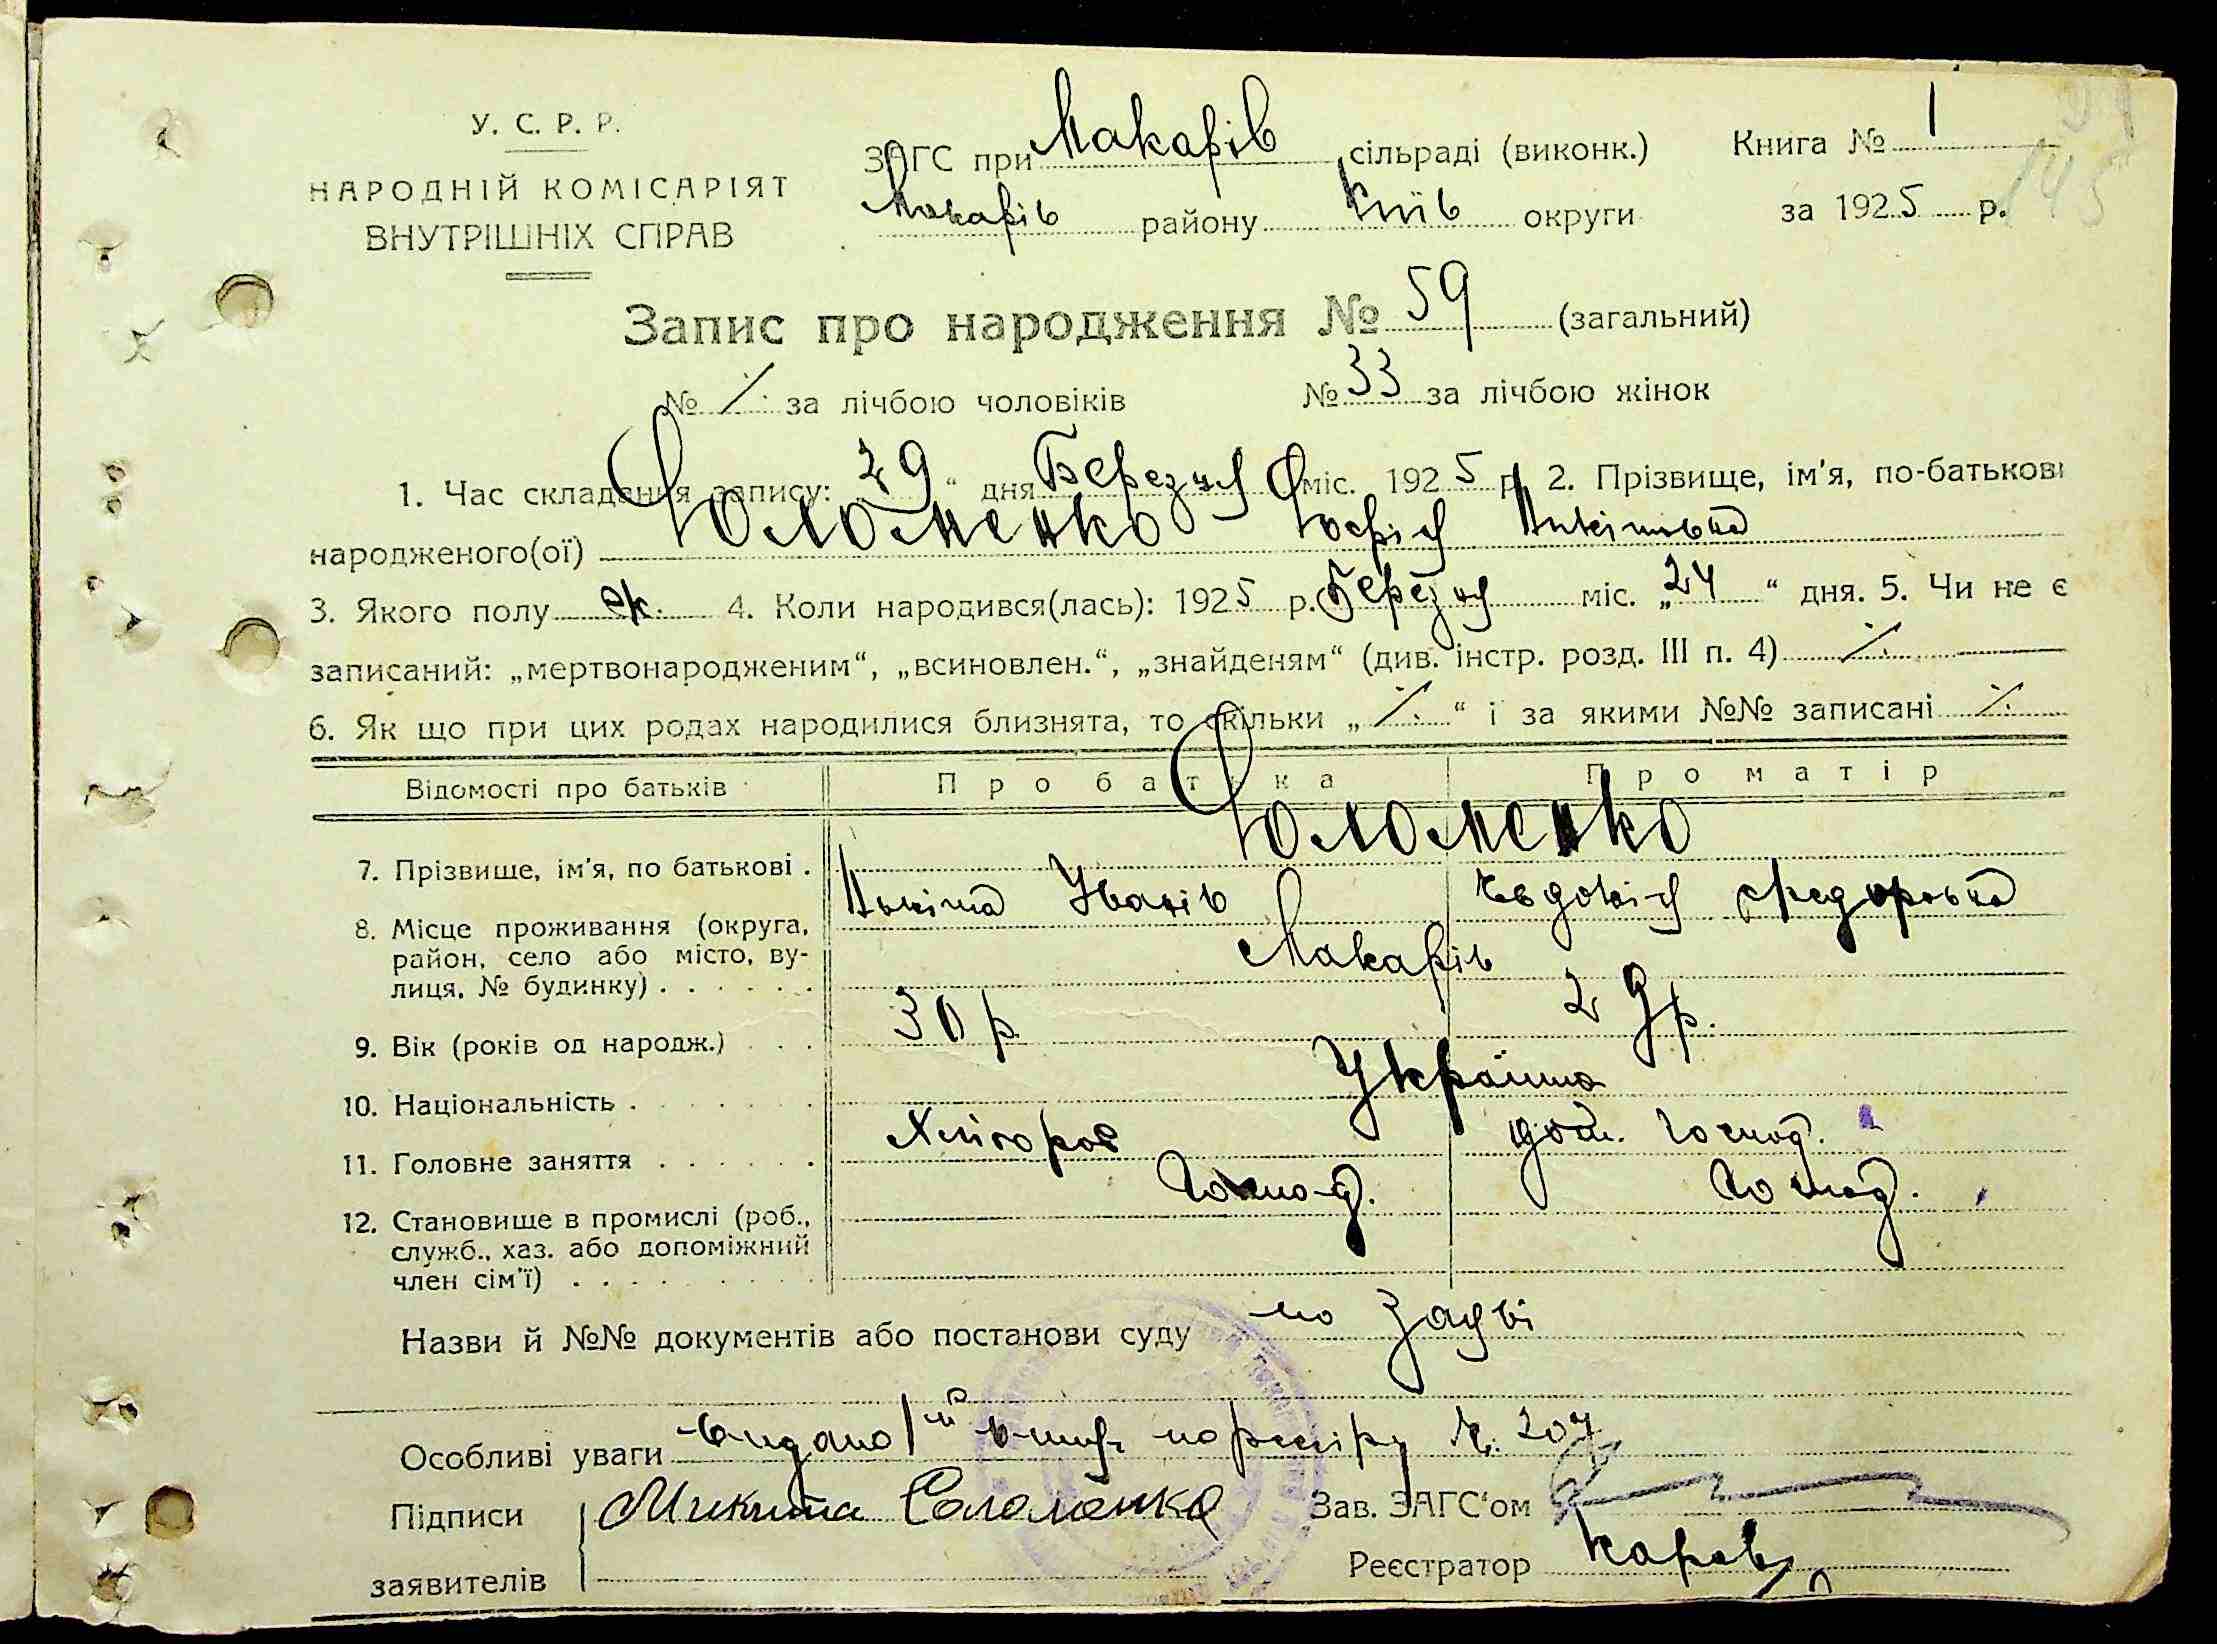 У. С. Р. Р.
НАРОДНІЙ КОМІСАРІЯТ
ВНУТРІШНІХ СПРАВ
ЗАГС при Макарів сільраді (виконк.) Книга № 1
Макарів району Київ округи за 1925 р.
145
Запис про народження № 59 (загальний)
№ ⁒ за лічбою чоловіків № 33 за лічбою жінок
1. Час складання запису: „29“ дня Березня міс. 1925 р. 2. Прізвище, ім'я, по-батькові
народженого(ої) Соломенко Софія Микітівна
3. Якого полу ж. 4. Коли народився(лась): 1925 р. Березня міс. „24“ дня. 5. Чи не є
записаний: „мертвонародженим“, „всиновлен.“, „знайденям“ (див. інстр. розд. III п. 4) ⁒
6. Як що при цих родах народилися близнята, то скільки „⁒“ і за якими №№ записані ⁒
Відомості про батьків Про батька Про матір
Соломенко
7. Прізвище, ім'я, по батькові .
Микіта Іванів Євдокія Федорівна
8. Місце проживання (округа,
район, село або місто, ву-
лиця, № будинку) . . . . . .
Макарів
9. Вік (років од народж.) . . . 30 р. 29 р.
10. Національність . . . . . . . Україна
11. Головне заняття . . . . . . Хлібороб дом. господ.
12. Становище в промислі (роб.,
служб., хаз. або допоміжний
член сім'ї) . . . . . . . . .
господ. господ.
Назви й №№ документів або постанови суду по заяві
Особливі уваги видано 1й по реєстру № 207
Підписи
заявителів
Микита Соломенко
Зав. ЗАГС'ом
Реєстратор